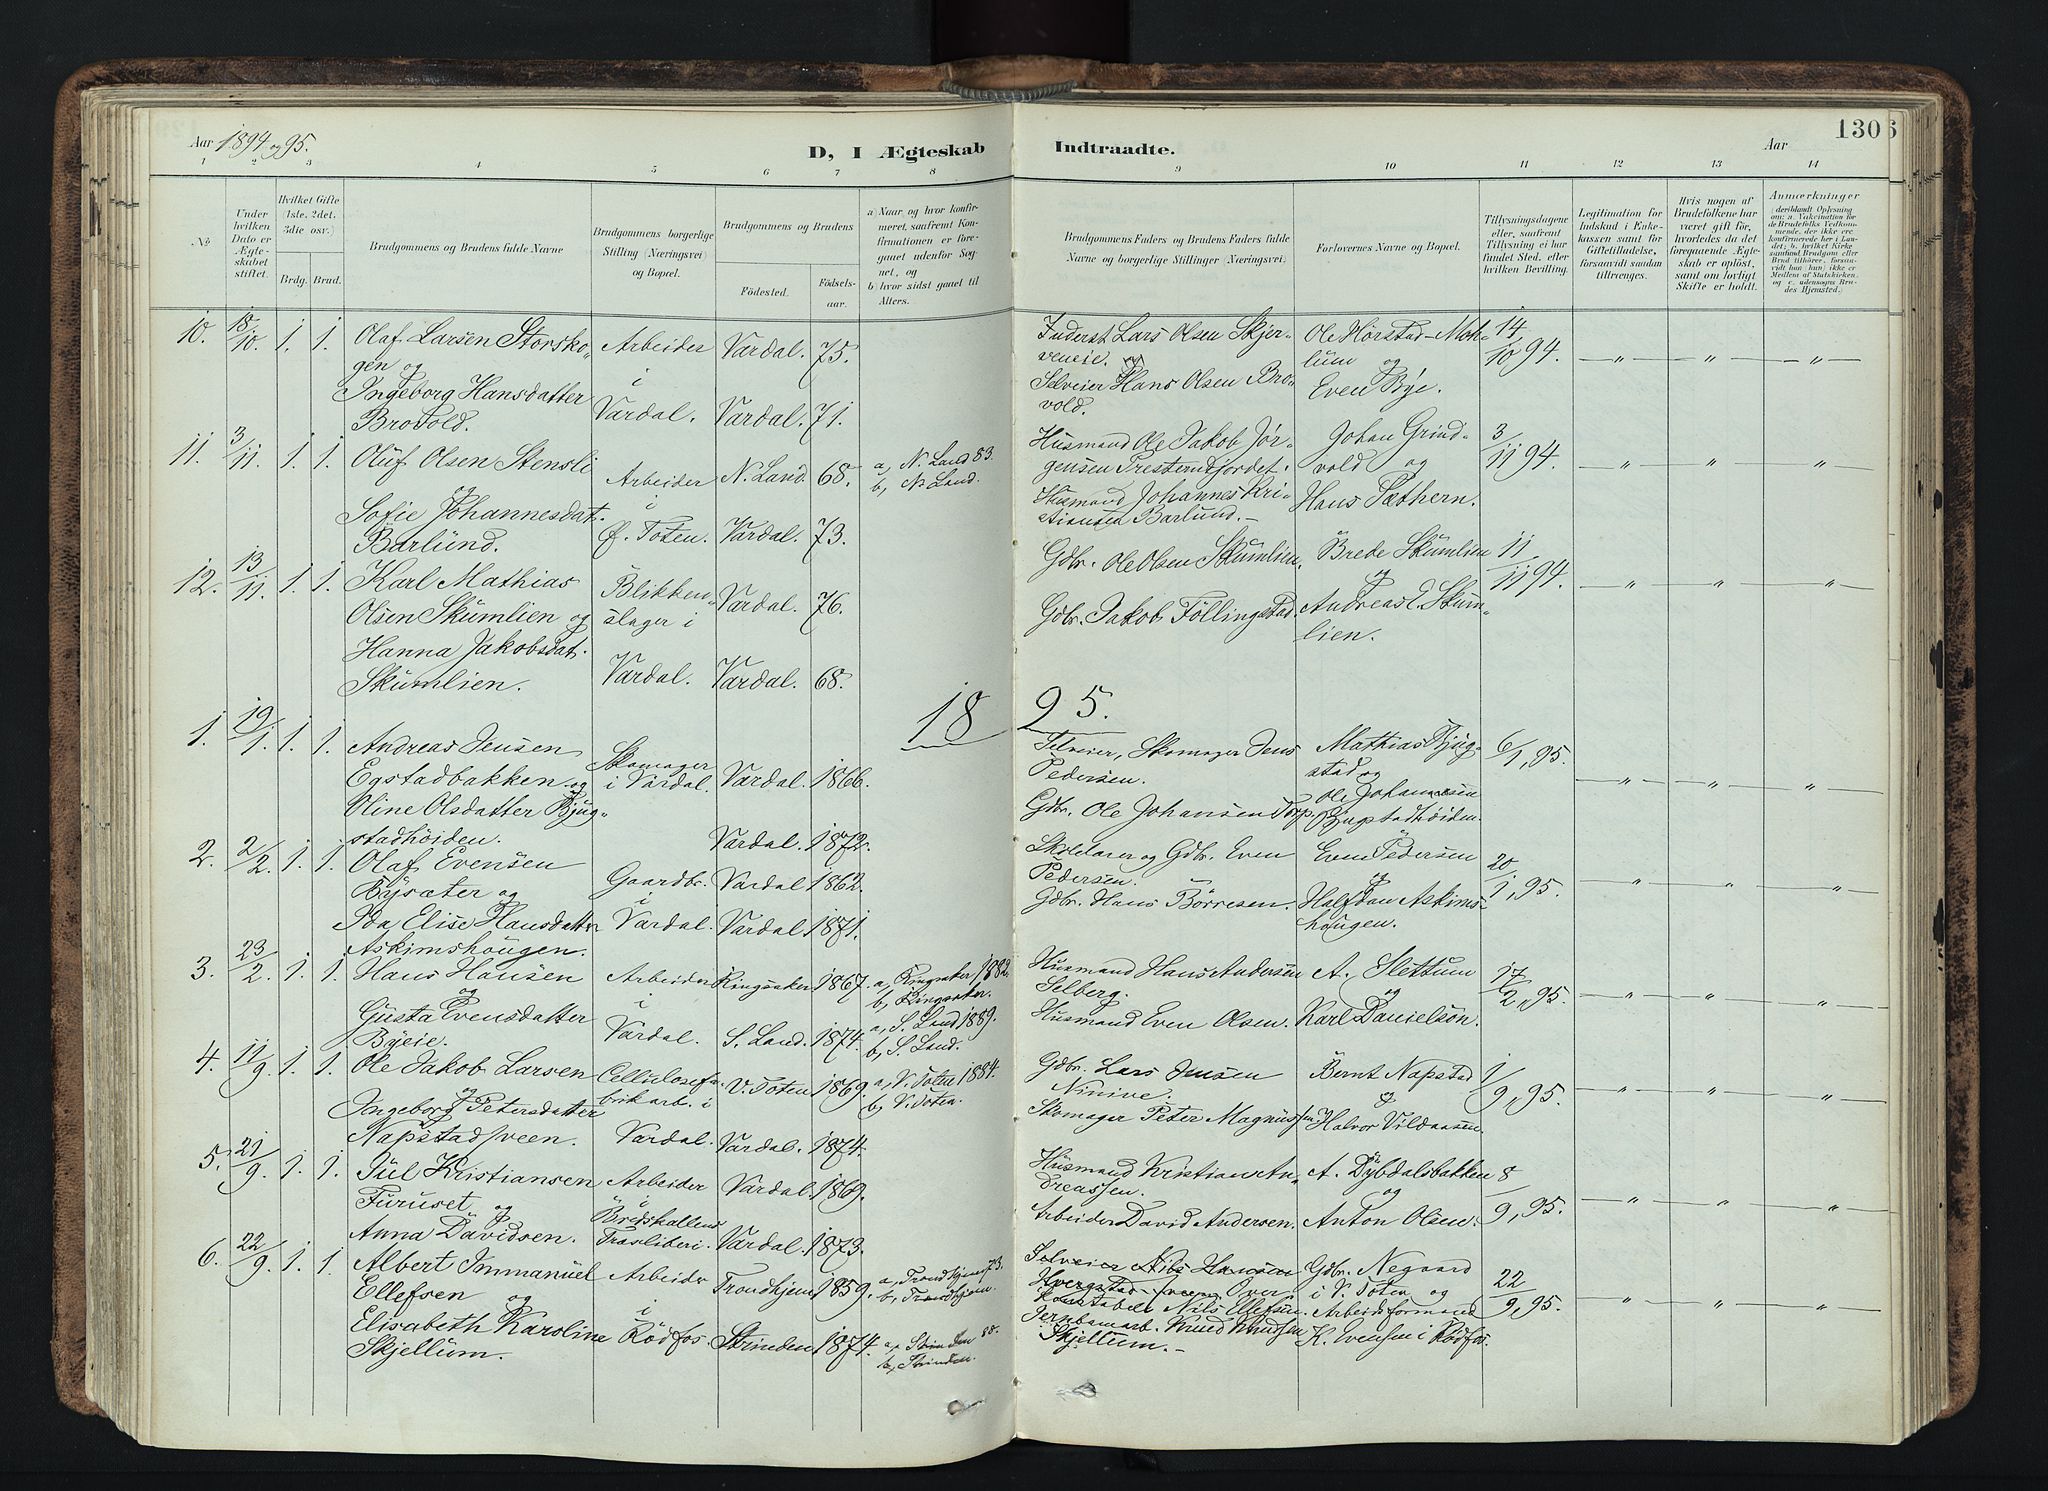 Aar 1894 og 95.
D, I Ægteskab Indtraadte.
Aar
130
1 2 3 4 5 6 7 8 9 10 11 12 13 14
No
Under hvilken Dato er Ægteskabet stiftet.
Hvilket Gifte (1ste, 2det, 3die osv).
Brdg. Brud.
Brudgommens og Brudens fulde Navne
Brudgommens borgerlige Stilling (Næringsvei) og Bopæl.
Brudgommens og Brudens
Födested.
Födselsaar.
a) Naar og hvor konfirmeret, saafremt Konfirmationen er foregaaet udenfor Sognet, og
b) hvor sidst gaaet til Alters.
Brudgommens Faders og Brudens Faders fulde Navne og borgerlige Stillinger (Næringsvei).
Forlovernes Navne og Bopæl.
Tillysningsdagene eller, saafremt Tillysning ei har fundet Sted, efter hvilken Bevilling.
Legitimation for Indskud i Enkekassen samt for Giftetilladelse, forsaavidt saadan tiltrænges.
Hvis nogen af Brudefolkene har været gift för, hvorledes da det foregaaende Ægteskab er oplöst, samt om lovligt Skifte er holdt.
Anmærkninger
(deriblandt Oplysning om: a. Vakcination for de Brudefolks Vedkommende, der ikke ere konfirmerede her i Landet; b. hvilket Kirkesamfund Brudgom eller Brud tilhörer, forsaavidt han (hun) ikke er Medlem af Statskirken, og c. udensogns Brudes Hjemsted.)
10. 18/10. 1. 1. Olaf Larsen Storskogen og Ingeborg Hansdatter Brovold.
Arbeider i Vardal.
Vardal. 75.
Vardal. 71.
Inderst Lars Olsen Skjerveneie. og Selveier Hans Olsen Brovold.
Ole Hørstad-Mohlum og Even Bye.
14/10 94. — " — " — " —
11. 3/11. 1. 1. Oluf Olsen Stensli og Sofie Johannesdat. Barlund.
Arbeider i Ø. Toten.
N. Land. 68. a, N. Land 83. b, N. Land.
Vardal. 73.
Husmand Ole Jakob Jørgensen Presterudfjordet.
Husmand Johannes Kristiansen Barlund.—
Johan Grindvold og Hans Sæthern.
3/11 94. — " — " — " —
12. 13/11. 1. 1. Karl Mathias Olsen Skumlien og Hanna Jakobsdat. Skumlien.
Blikkenslager i Vardal.
Vardal. 76.
Vardal. 68.
Gdbr. Ole Olsen Skumlien.
Gdbr. Jakob Föllingstad.
Brede Skumlien og Andreas E. Skumlien.
11/11 94. — " — " — " —
1895.
1. 19/1. 1. 1. Andreas Jensen Egstadbakken og Oline Olsdatter Bjugstadhöiden.
Skomager i Vardal.
Vardal. 1866.
Vardal. 1872.
Selveier, Skomager Jens Pedersen.
Gdbr. Ole Johansen Torp.
Mathias Bjugstad og Ole Johannesen Bjugstadhöiden.
6/1, 95. — " — " — " —
2. 2/2. 1. 1. Olaf Evensen Bysæter og Ida Elise Hansdatter Askimshougen.
Gaardbr. i Vardal.
Vardal 1862.
Vardal 1871.
Skolelærer og Gdbr. Even Pedersen.
Gdbr. Hans Börresen.
Even Pedersen og Halfdan Askimshougen.
20/1, 95. — " — " — " —
3. 23/2. 1. 1. Hans Hansen og Gusta Evensdatter Byeie.
Arbeider i Vardal.
Ringsaker 1867. a, Ringsaker 1882. b, Ringsaker.
S. Land. 1874. a, S. Land 1889. b, S. Land.
Husmand Hans Andersen Selberg.
Husmand Even Olsen.
A. Slettum og Karl Danielson.
17/2, 95. — " — " — " —
4. 11/9. 1. 1. Ole Jakob Larsen og Ingeborg Petersdatter Napstadsveen.
Cellulosefabrikarb. i Vardal.
V. Toten 1869. a, V. Toten 1884. b, V. Toten.
Vardal. 1874.
Gdbr. Lars Jensen Ninive.
Skomager Peter Magnussen.
Bernt Napstad og Halvor Vildaasen.
1/9, 95. — " — " — " —
5. 21/9. 1. 1. Juel Kristiansen Furuset og Anna Davidsen.
Arbeider i Bredskallens Træsliberi.
Vardal 1869.
Vardal 1873.
Husmand Kristian Andreassen.
Arbeider David Andersen.
A. Dybdalsbakken og Anton Olsen.
8/9, 95. — " — " — " —
6. 22/9. 1. 1. Albert Immanuel Ellefsen og Elisabeth Karoline Skjellum.
Arbeider i Rödfos.
Trondhjem 1859. a, Trondhjem 73. b, Trondhjem.
Strinden 1874. a, Strinden 88. b, Strinden.
Selveier Nils Hansen
Overkonstabel Nils Ellefsen
Jernbanearb. Knud Knudsen Skjellum.—
Gdbr. Negaard i V. Toten og Arbeidsformand K. Evensen i Rödfos.
22/9, 95. — " — " — " —